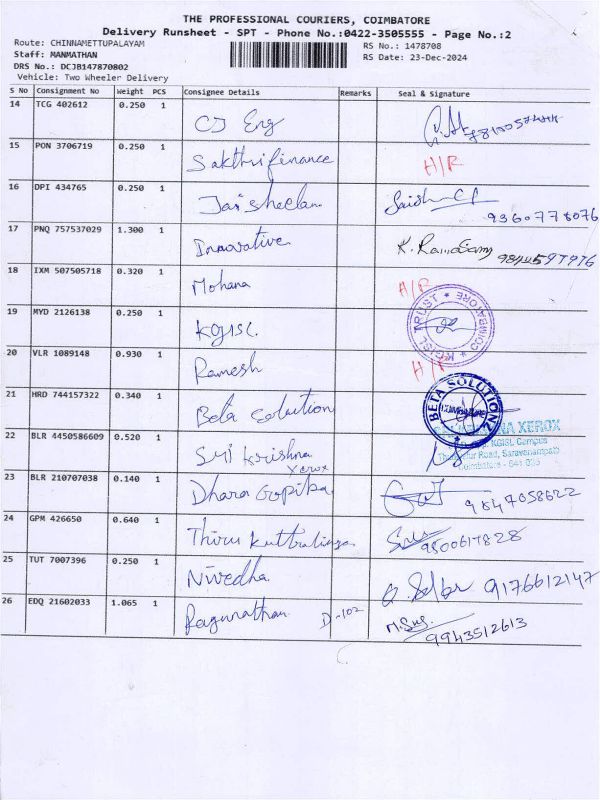 THE PROFESSIONAL COURIERS, COIMBATORE
Delivery Runsheet - SPT - Phone No.:0422-3505555 - Page No.:2
Route: CHINNAMETTUPALAYAM RS No.: 1478708
Staff: MANMATHAN RS Date: 23-Dec-2024
DRS No.: DCJB147870802
Vehicle: Two Wheeler Delivery
S No Consignment No Weight PCS Consignee Details Remarks Seal & Signature
14 TCG 402612 0.250 1 CJ Eng
15 PON 3706719 0.250 1 Sakthi finance H/R
16 DPI 434765 0.250 1 Jai sheelan
9360778076
17 PNQ 757537029 1.300 1 Innovative K. Ramasamy
18 IXM 507505718 0.320 1 Mohana H/R
19 MYD 2126138 0.250 1 KGISL KGISL TRUST * COIMBATORE *
20 VLR 1089148 0.930 1 Ramesh H/R
21 HRD 744157322 0.340 1 Beta Solution BETA SOLUTIONZ COIMBATORE
22 BLR 4450586609 0.520 1 Sri Krishna XEROX
Xerox KGISL Campus
Road, Saravanampatti
Coimbatore - 641 035
23 BLR 210707038 0.140 1 Dhara Gopika 9847058622
24 GPM 426650 0.640 1 Thiru Kuttralingam 9500617828
25 TUT 7007396 0.250 1 Nivedha 9176612147
26 EDQ 21602033 1.065 1 Ragunathan D-102 9943512613